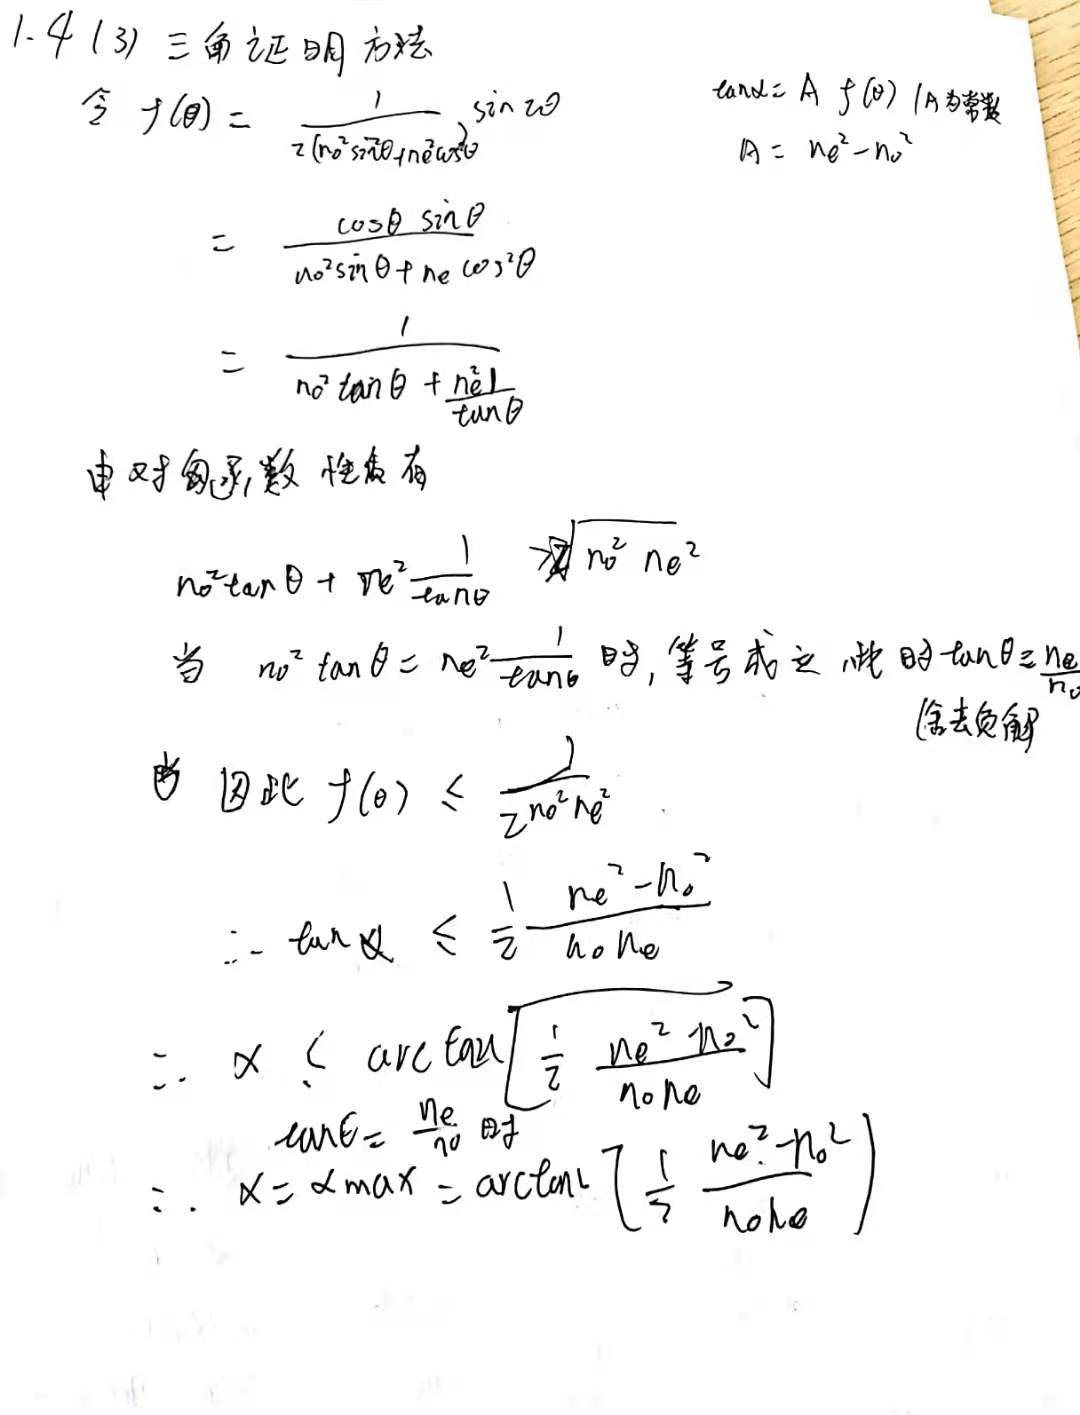 1.4 (3) 三角证明方法
令 f(θ) = 1/(2(no²sin²θ+ne²cos²θ)) sin2θ
tanα = A f(θ) (A为常数
A = ne²-no²
= cosθ sinθ/(no²sinθ+ne cos²θ)
= 1/(no²tanθ + ne²1/tanθ)
由对勾函数性质有
no²tanθ + ne² 1/tanθ ≥ 2√(no² ne²)
当 no² tanθ = ne² 1/tanθ 时,等号成立,此时tanθ=ne/no
(舍去负解
因此 f(θ) ≤ 1/(2no²ne²)
∴ tanα ≤ 1/2 (ne²-no²)/(no ne)
∴ α ≤ arctan[1/2 (ne² no²)/(no ne)]
tanθ = ne/no 时
∴ α = αmax = arctan[1/2 (ne²-no²)/(no ne))